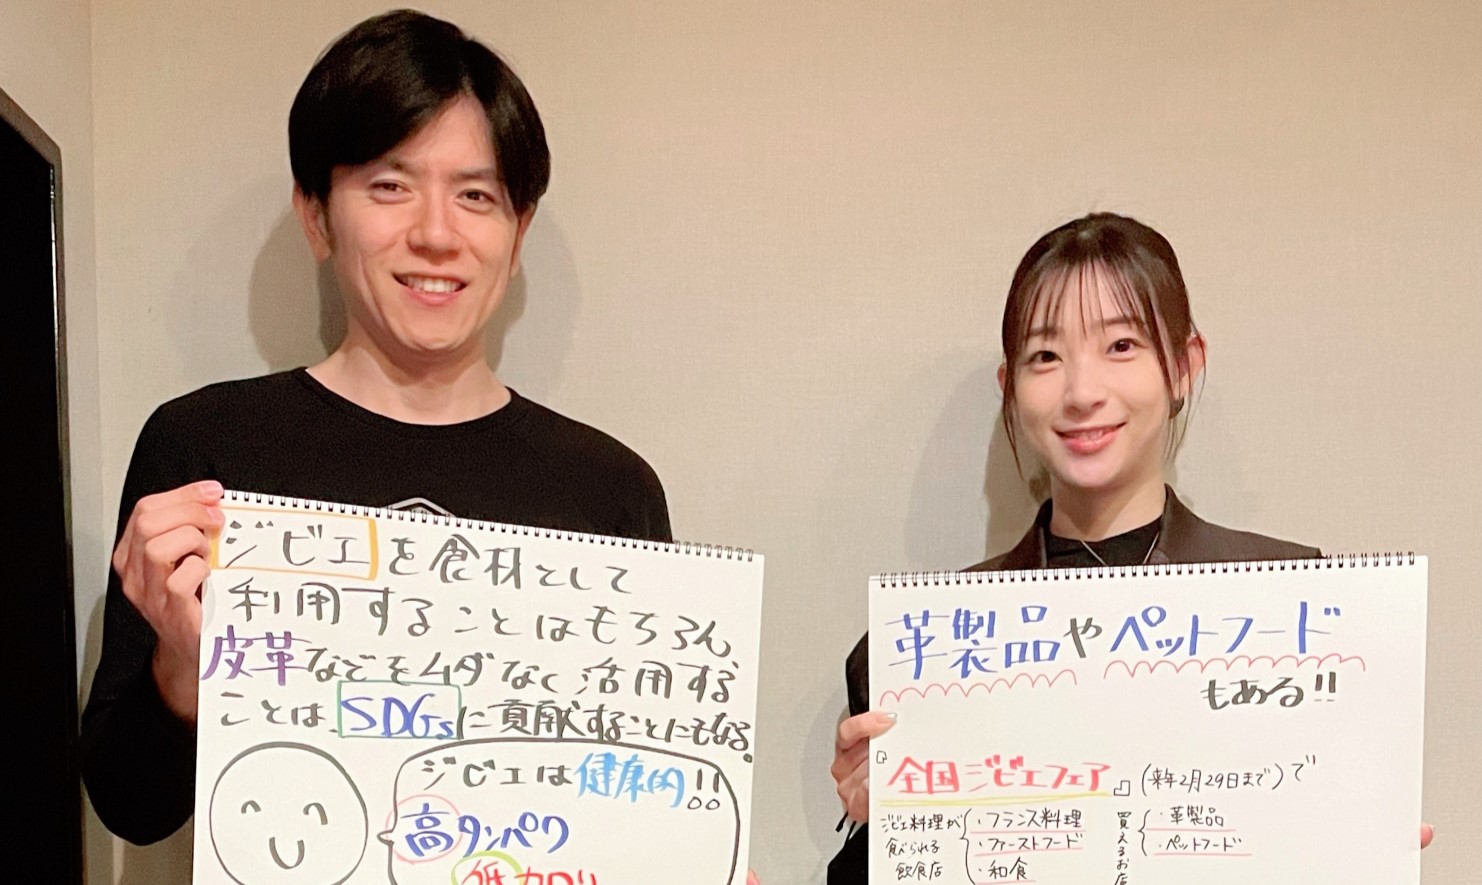 ジビエを食材として
利用することはもちろん、
皮革などをムダなく活用する
ことは、SDGsに貢献することにもなる。
ジビエは健康的!!
高タンパク
低カロリ
革製品やペットフード
もある!!
『全国ジビエフェア』(来年2月29日まで)で
ジビエ料理が
食べられる
飲食店
・フランス料理
・ファーストフード
・和食
買えるお店
・革製品
・ペットフード